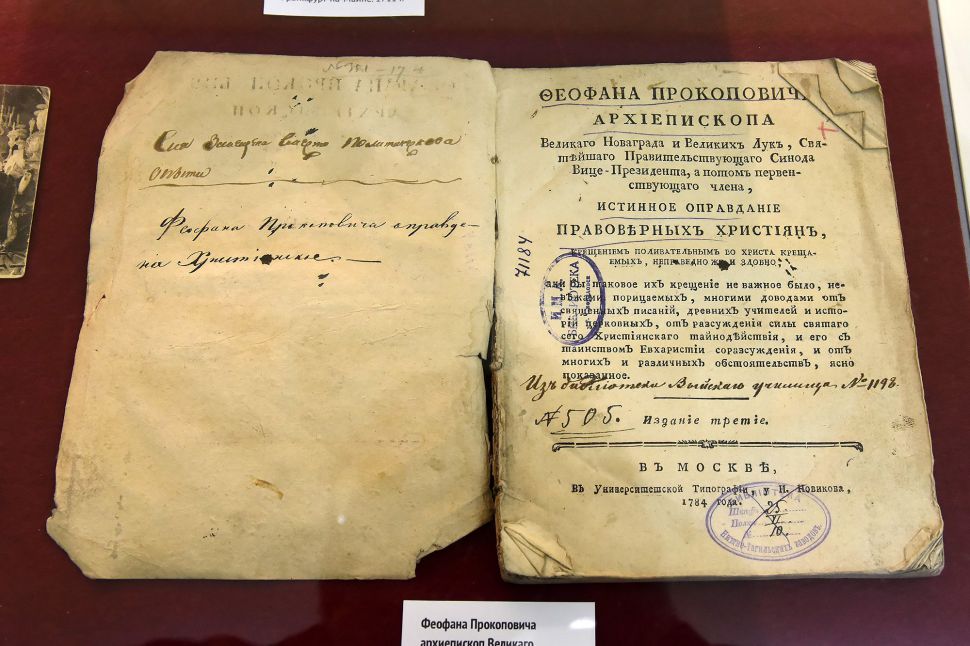 1711 г.
Феофана Прокоповича оправде-
ѲЕОФАНА ПРОКОПОВИЧА
АРХІЕПИСКОПА
Великаго Новаграда и Великихъ Лукъ, Свя-
тѣйшаго Правительствующаго Синода
Вице-Президента, а потомъ первен-
ствующаго члена,
ИСТИННОЕ ОПРАВДАНІЕ
ПРАВОВѢРНЫХЪ ХРИСТІЯНЪ,
КРЕЩЕНІЕМЪ ПОЛИВАТЕЛЬНЫМЪ ВО ХРИСТА КРЕЩА-
ЕМЫХЪ, НЕПРАВЕДНО ЖЕ И ЗЛОБНО,
аки бы таковое ихъ крещеніе не важное было, не-
вѣжами порицаемыхъ, многими доводами отъ
священныхъ писаній, древнихъ учителей и исто-
рій церковныхъ, отъ разсужденія силы святаго
сего Христіянскаго тайнодѣйствія, и его съ
таинствомъ Евхаристіи соразсужденія, и отъ
многихъ и различныхъ обстоятельствъ, ясно
показанное.
71184
БИБЛИОТЕКА
Изъ библіотеки Выйскаго училища № 1198.
№ 505.
Изданіе третіе.
ВЪ МОСКВѢ,
Въ Университетской Типографіи, у Н. Новикова,
1784 года.
БИБЛІОТЕКА
Шкафъ 25
Полка II
№ 10
Нижне-Тагильскихъ заводовъ
Феофана Прокоповича
архиепископ Великаго